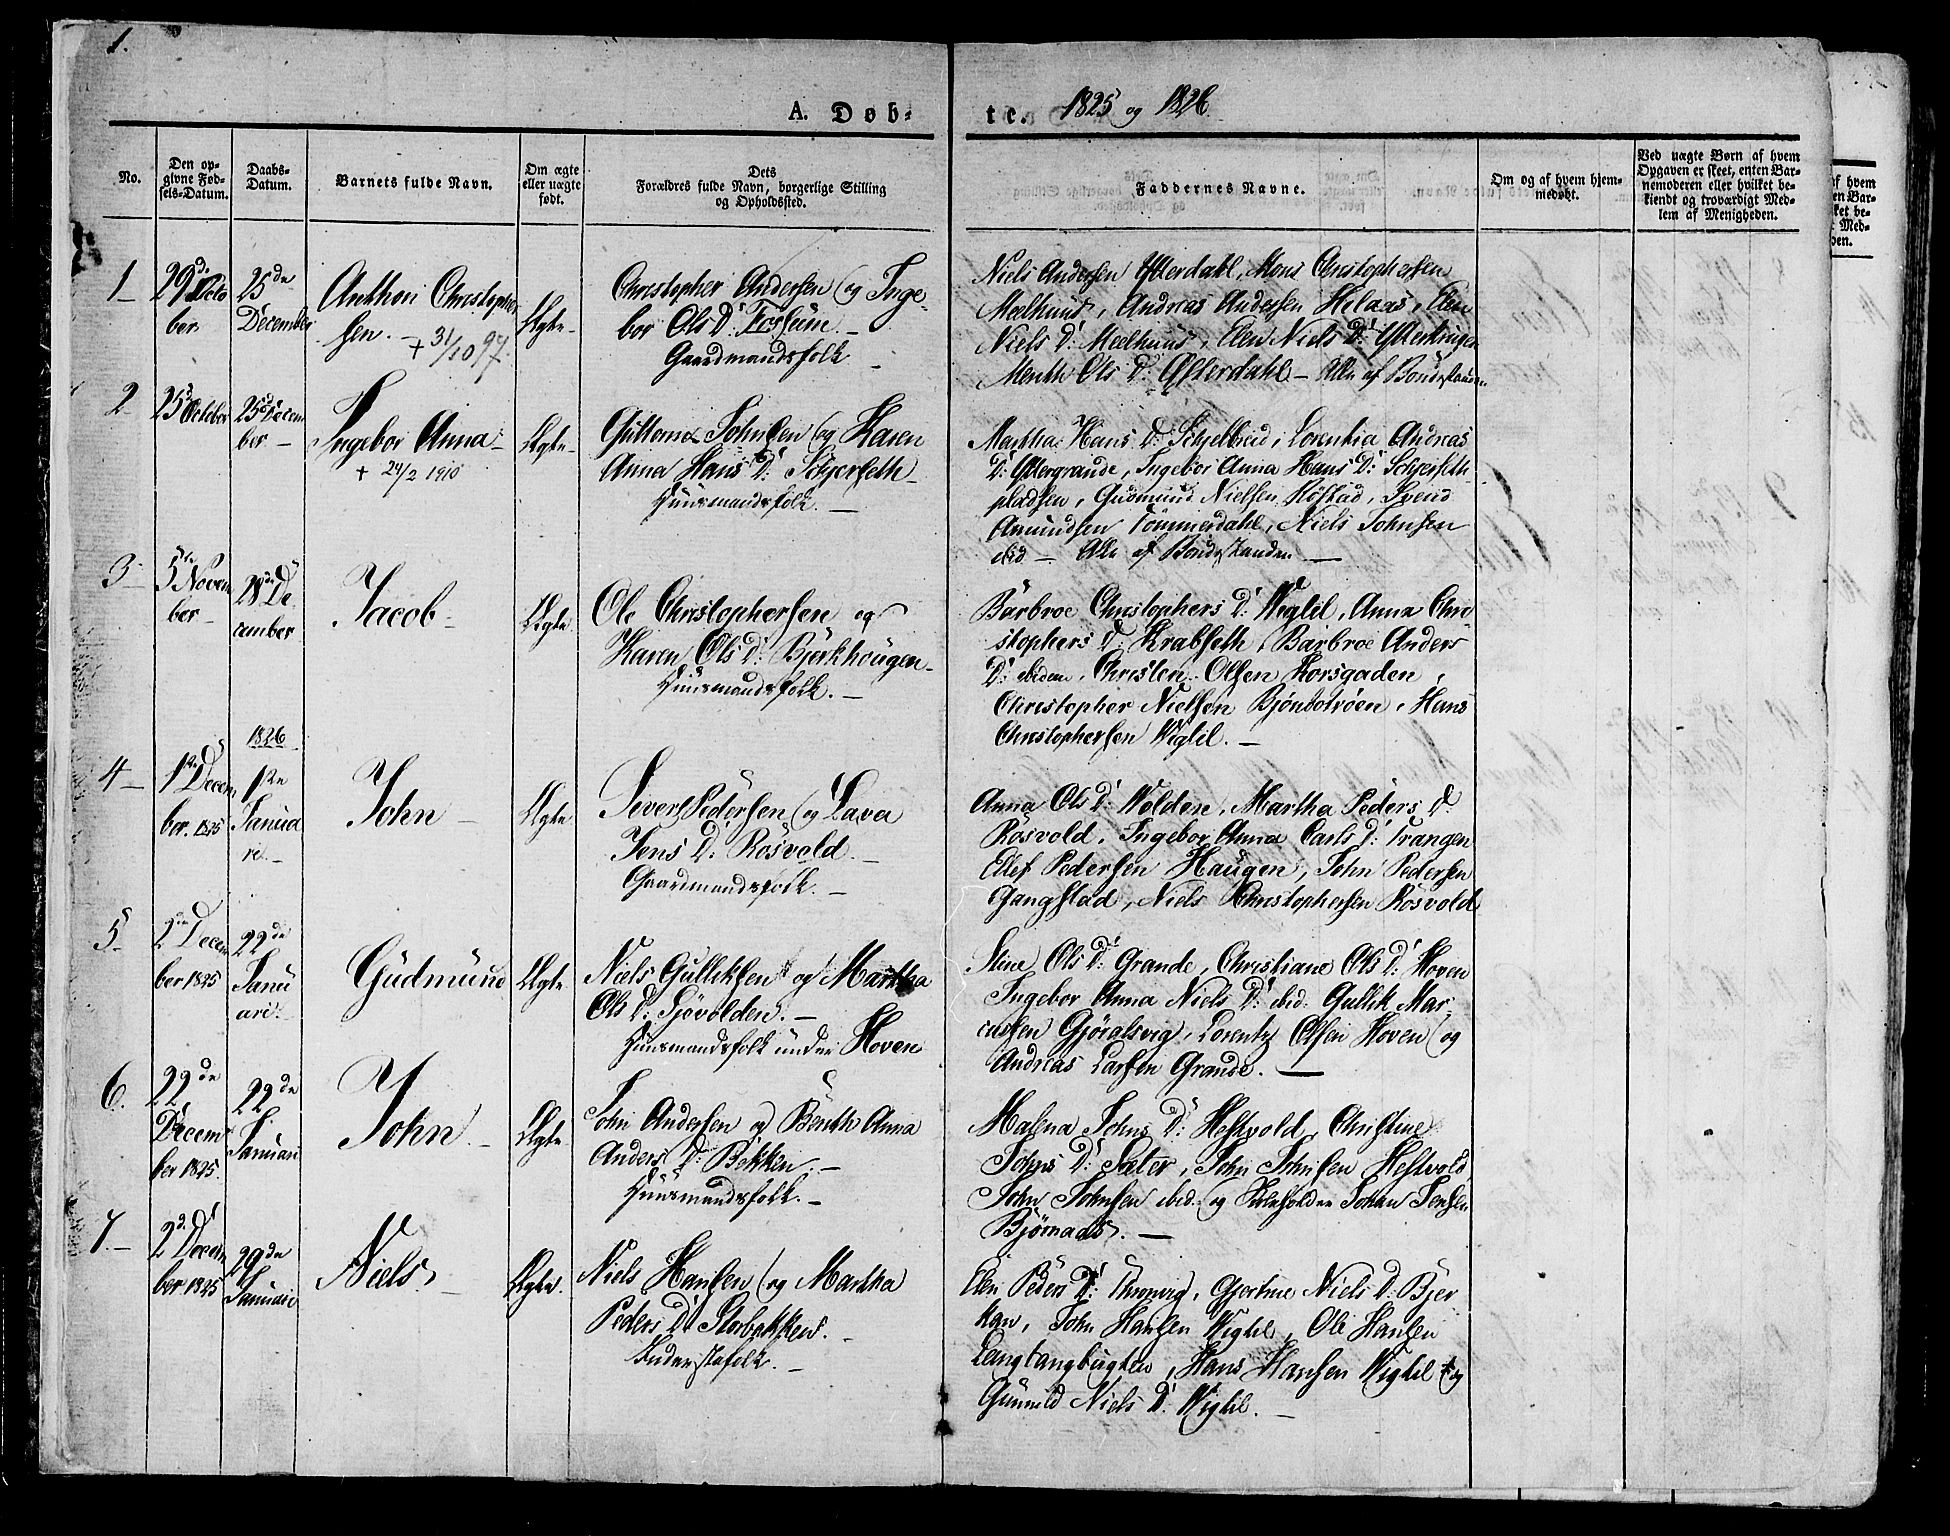 1.
A. Døb-
te. 1825 og 1826
No.
Den op-
givne Fød-
sels-Datum.
Daabs-
Datum.
Barnets fulde Navn.
Om ægte
eller uægte
født.
Dets
Forældres fulde Navn, borgerlige Stilling
og Opholdssted.
Faddernes Navne.
Om og af hvem hjem-
medøbt.
Ved uægte Børn af hvem
Opgaven er skeet, enten Bar-
nemoderen eller hvilket be-
kiendt og troværdigt Med-
lem af Menigheden.
1
29de Octo
ber
25de
December
Anthon Christopher
sen.
+ 31/10 97.
Ægte
Christopher Andersen og Inge
bor Ols D: Fossum
Gaardmandsfolk
Niels Andersen Østerdahl, Mons Christophersen
Meelhuus, Andreas Andersen Helaas, Elen
Niels D: Meelhuus, Elen Niels D:
Ols D: Østerdahl - Alle af Bondestanden
2
25 October
25de Decem
ber
Ingebor Anna
+ 24/2 1910
Ægte
Guttorm Johnsen og Karen
Anna Hans D: Schjerfeth
Huusmandsfolk.
Martha Hans D: Schjelbreid, Lorentia Andreas
D: Østergrande, Ingebor Anna Hans D: Schjerfeth
pladsen, Gudmund Nielsen Hofstad, Svend
Amundsen Tömmerdahl, Niels Johnsen
ibid - Alle af Bondestanden
3
5te Novem
ber
28de De
cember
Jacob
Ægte
Ole Christophersen og
Karen Ols D: Bjerkhougen
Huusmandsfolk.
Barbroe Christophers D: Weglil, Anna Chri
stophers D: Krabseth, Barbroe Anders
D: ibidem, Christen Olsen Korsgaden,
Christopher Nielsen Bjönbotröen, Hans
Christophersen Weglil.
4
1ste Decem
ber. 1825
1826
1ste
Janua
ri.
John
Ægte
Sivert Pedersen og Lava
Jens D: Rosvold.
Gaardmandsfolk.
Anna Ols D: Wolden, Martha Peders D:
Rosvold, Ingebor Anna Carls D: Trangen
Elef Pedersen Haugen, John Pedersen
Gangstad, Niels Christophersen Rosvold
5
2den Decem
ber 1825
22de
Janu
ari.
Gudmund
Ægte
Niels Gulliksen og Martha
Ols D: Sjövolden.
Huusmandsfolk under Hoven
Stine Ols D: Grande, Christiane Ols D: Hoven
Ingebor Anna Niels D: ibid. Gullik Mar
cussen Gjöralsvig, Lorentz Olsen Hoven og
Andreas Larsen Grande.
6.
22de
Decem
ber 1825.
22de
Januari
John
Ægte
John Andersen og Benth Anna
Anders D: Bekken.
Huusmandsfolk.
Malena Johns D: Hestvold, Christine
Johns D: Sæter, John Johnsen Hestvold
John Johnsen ibid. og Johan Jensen
Bjørnaas.
7.
2de Decem
ber 1825
29de
Januari
Niels.
Ægte.
Niels Hansen og Martha
Peders D: Storbekken.
Inderstefolk.
Elen Peders D: Gjertrue Niels D: Bjer
kan, John Hansen Wiglil, Ole Hansen
Langtangbugten, Hans Hansen Wiglil og
Gunnild Niels D: Wiglil.